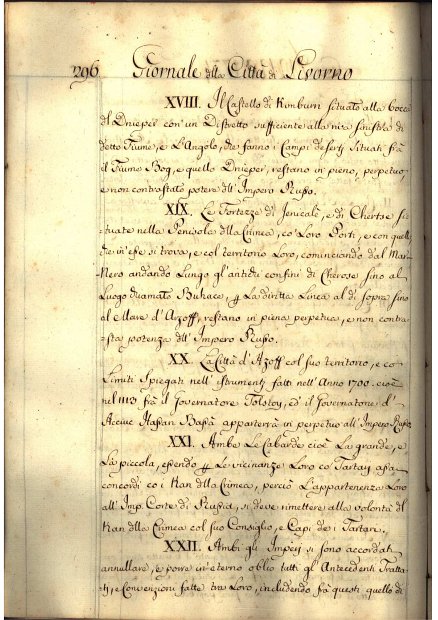 296 Giornale della Città di Livorno
XVIII. Il Castello di Kinburn situato alla bocca
del Dnieper con'un Distretto sufficiente alla riva sinistra di
detto Fiume, e L'Angolo, che fanno i Campi deserti situati frà
il Fiume Bog, e quello Dnieper, restano in pieno, perpetuo,
e non contrastato potere dell' Impero Russo.
XIX. Le Fortezze di Jenicalè, e di Chertse si-
tuate nella Penisola della Crimea, co' Loro Porti, e con quello
che in esse si trova, e col territorio Loro, cominciando dal Mar
Nero andando Lungo gl'antichi confini di Cherose sino al
Luogo chiamato Buhace, e La diritta Linea al di sopra sino
al Mare d'Azoff, restano in piena perpetua, e non contra-
sta potenza dell' Impero Russo.
XX. La Città d'Azoff col suo territorio, e co
Limiti Spiegati nell' istrumenti fatti nell' Anno 1700. cioè
nel 1113 frà il Governatore Tolstoy, ed' il Governatore d'
Acciuc Hassan Bassà apparterrà in perpetuo all' Impero Russo
XXI. Ambe Le Cabarde cioè La grande, e
La piccola, essendo p Le vicinanze Loro co' Tartari assai
concordi co i Kan della Crimea, perciò L'appartenenza Loro
all' Imp. Corte di Russia, si deve rimettere alla volontà del
Kan della Crimea col suo Consiglio, e Capi dei Tartari.
XXII. Ambi gli Imperj si sono accordati
annullare, e porre in'eterno oblio tutti gli Antecedenti Tratta-
ti, e Convenzioni fatte tra Loro, includendo frà questi quello di